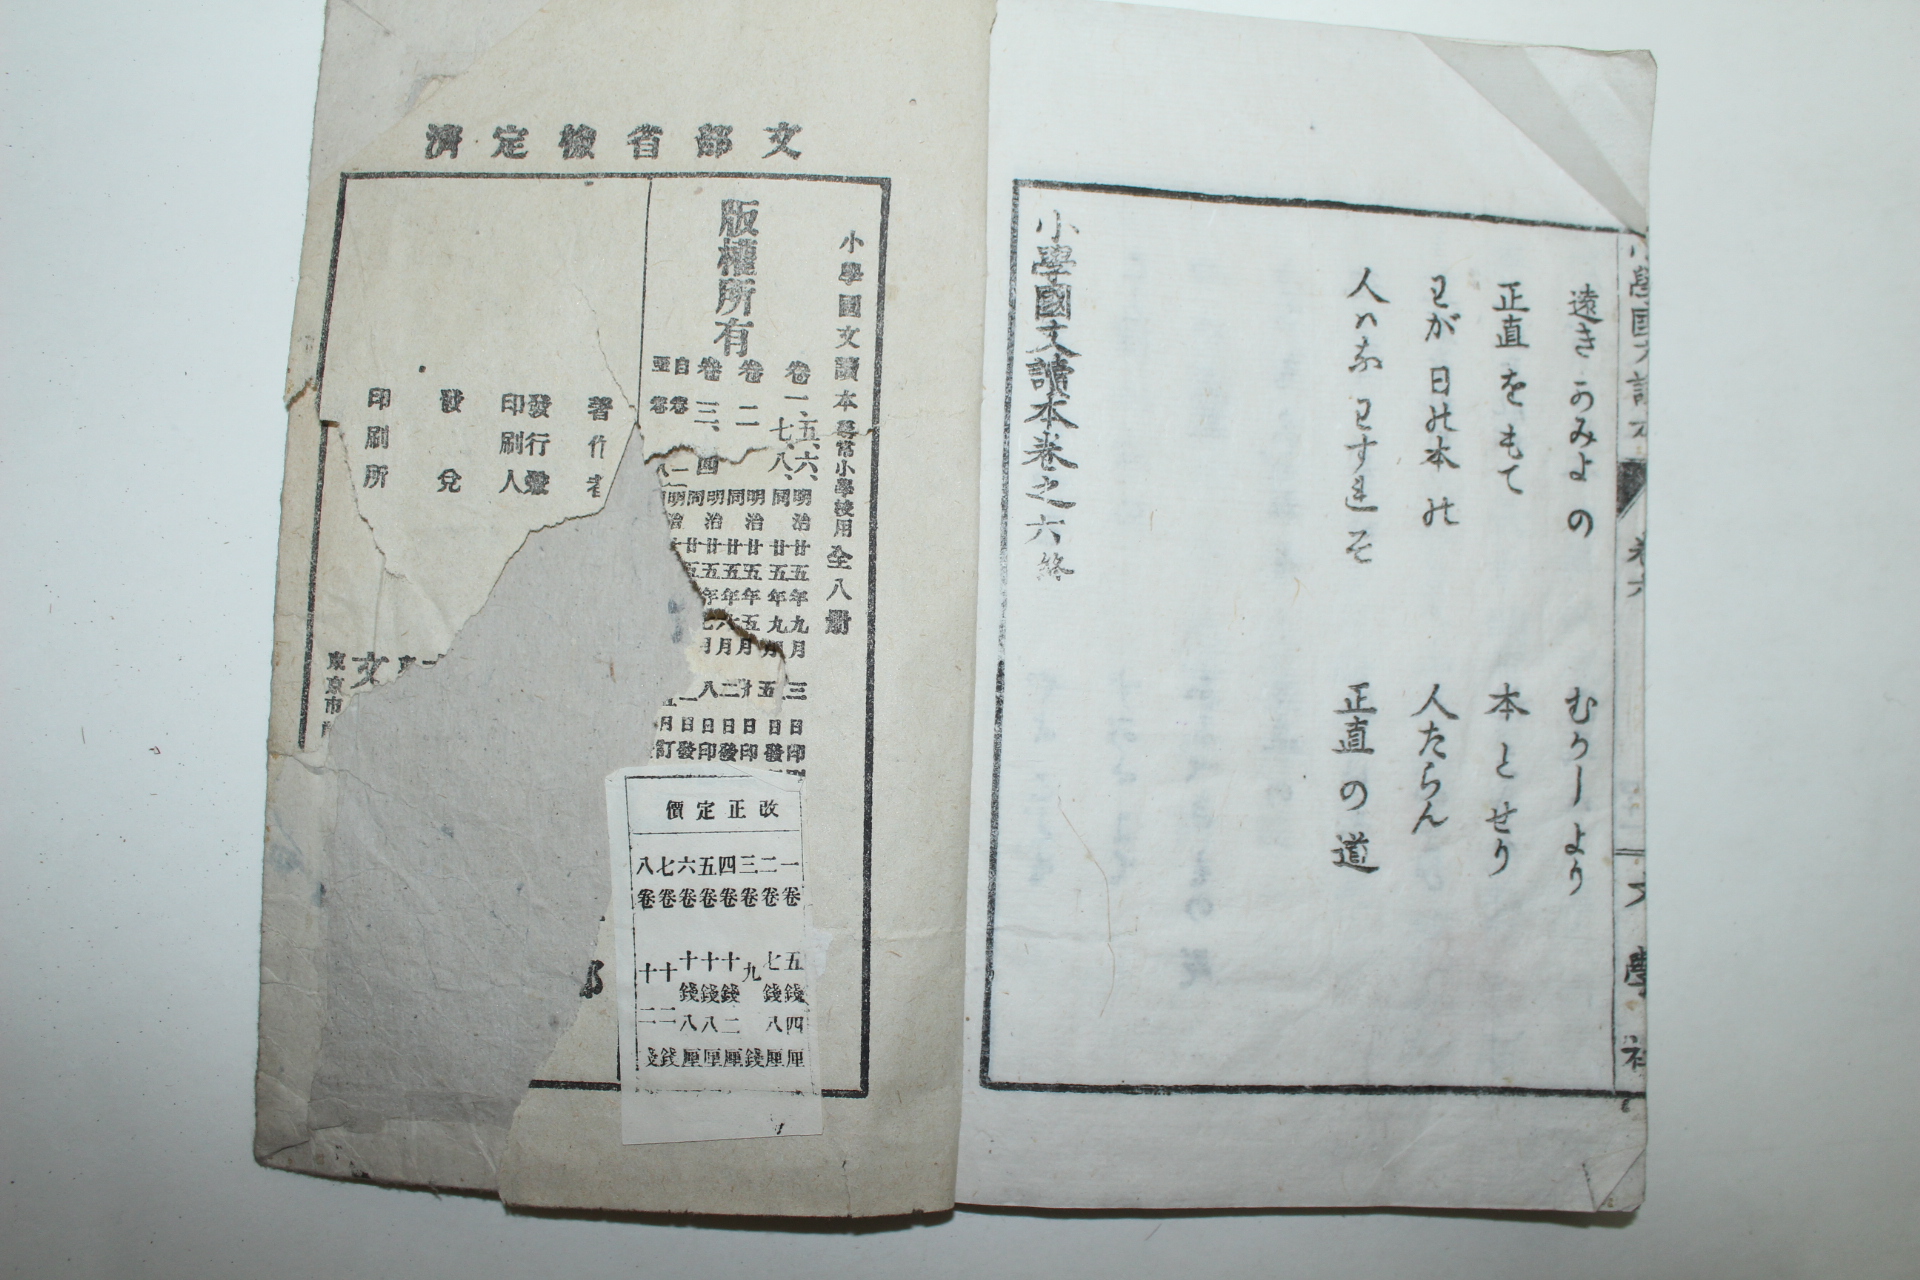 遠きかみよの　むかしより
正直をもて　本とせり
わが日の本の　人たらん
人はなわすれそ　正直の道
小學國文讀本卷之六終
卷六
文學社
文部省檢定濟
小學國文讀本尋常小學校用全八册
版權所有
卷一、五、六、七、八、
明治廿五年九月三日印
同廿五年九月五日發
卷二
明治廿五年五月廿日印
同廿五年六月二日發
卷三、四
明治廿五年七月八日印
著作者
發行兼印刷人
發兌
印刷所
文
東京市
改正定價
一卷　五錢四厘
二卷　七錢八厘
三卷　九錢
四卷　十錢二厘
五卷　十錢八厘
六卷　十錢八厘
七卷　十二錢
八卷　十二錢